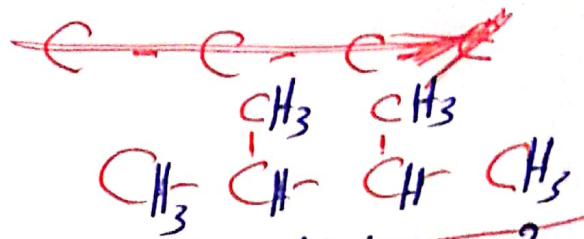 C - C - C
CH3 CH3
CH3 - CH - CH - CH3